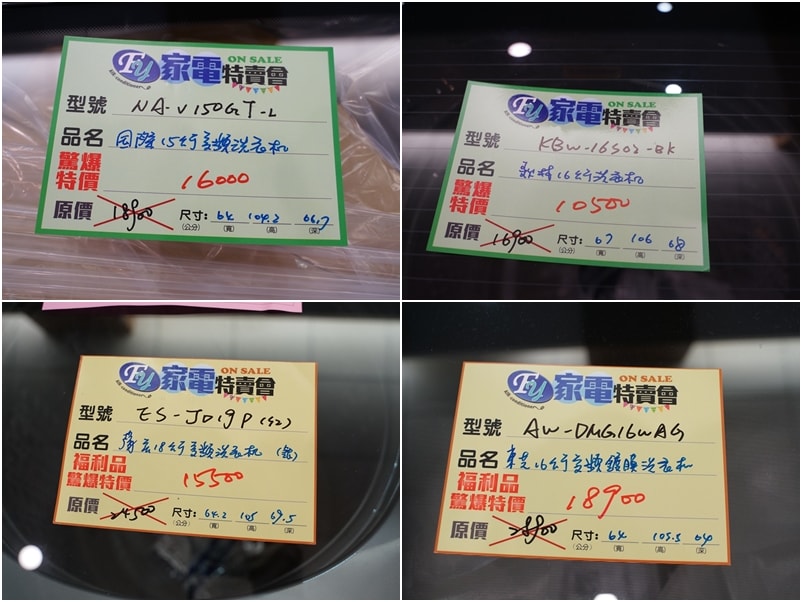 Fu 家電特賣會 ON SALE
air conditioner
型號 NA-V150GT-L
品名 国際15公斤变頻洗衣机
驚爆特價 16000
原價 18900 尺寸: 64 104.2 66.7
(公分) (寬) (高) (深)
Fu 家電特賣會 ON SALE
air conditioner
型號 KBW-16S02-BK
品名 歌林16公斤洗衣机
驚爆特價 10500
原價 16900 尺寸: 67 106 68
(公分) (寬) (高) (深)
Fu 家電特賣會 ON SALE
air conditioner
型號 ES-JD19P(S2)
品名 聲宝18公斤变頻洗衣机 (銀)
福利品
驚爆特價 15500
原價 24500 尺寸: 64.2 105 69.5
(公分) (寬) (高) (深)
Fu 家電特賣會 ON SALE
air conditioner
型號 AW-DMG16WAG
品名 東芝16公斤变頻鍍膜洗衣机
福利品
驚爆特價 18900
原價 28900 尺寸: 64 105.5 64
(公分) (寬) (高) (深)